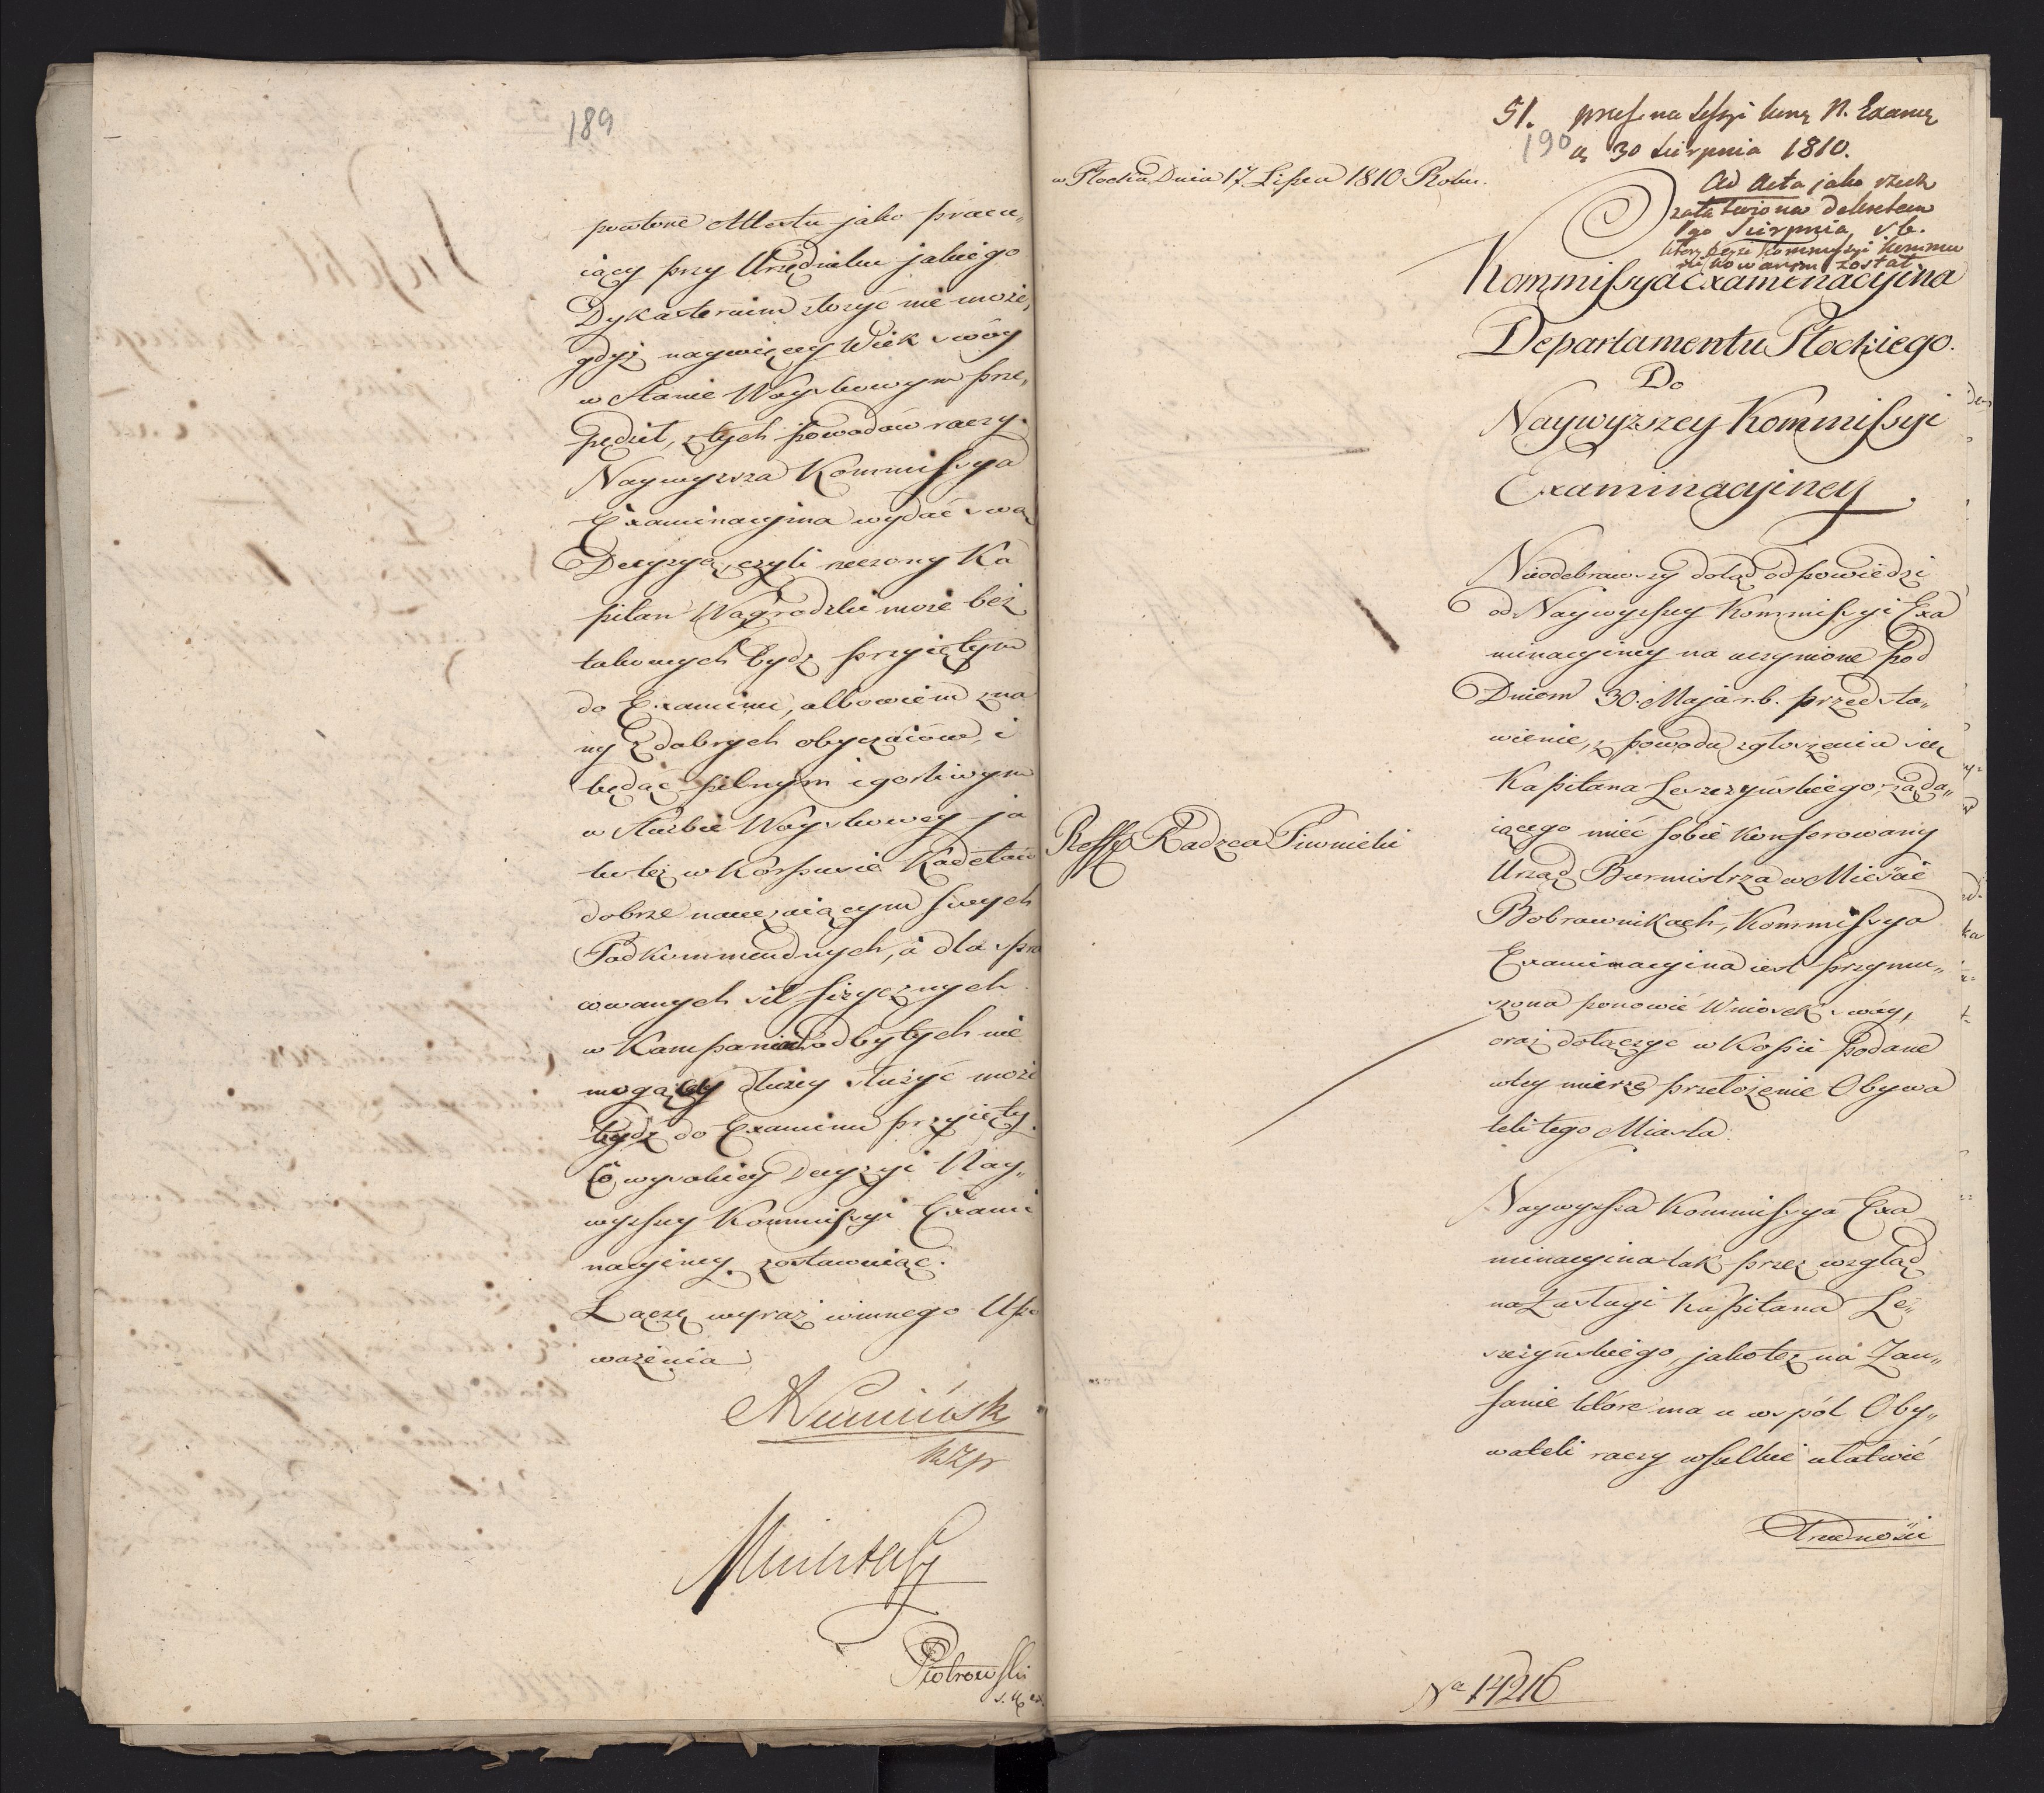 189
powtore Attestu jako pracu„
iący przy Urzędniku jakiego
Dykasterium złożyć nie może,
gdyż naywięcey Wiek swóy
w Stanie Woyskowym prze„
pędził, z tych powodów raczy
Naywyższa Kommissya
Examinacyina wydać swą
Decyzyą, czyli rzeczony Ka
pitan Wagrodzki może bez
takowych bydź przyiętym
do Examinu, albowiem zna
ny z dobrych obyczaiów, i
będąc pilnym i gorliwym
w Służbie Woyskowey ja
ko też w Korpusie Kadetów
dobrze nauczaiącym swych
Podkommendnych, a dla spra
cowanych sił fizycznych
w Kampaniach odbytych nie
mogący dłużey służyć może
bydź do Examinu przyięty.
Co wysokiey Decyzyi Nay„
wyższey Kommissyi Exami
nacyiney zostawuiąc.
Łączy wyraz winnego Usza
ważenia
Piotrowski
51. praes. na Sessyi Exam
190 d. 30 Sierpnia 1810.
w Płocku Dnia 17 Lipca 1810 Roku.
Ad Acta jako rzecz
załatwiona dekretem
1go Sierpnia r. b.
który teyże Kommissyi kommu
nikowanym został
Kommissya Examinacyina
Departamentu Płockiego.
Do
Naywyższey Kommissyi
Examinacyiney.
Nieodebrawszy dotąd odpowiedzi
od Naywyższey Kommissyi Exa
minacyiney na uczynione pod
Dniem 30. Maja r. b. przedsta„
wienie, z powodu zgłoszenia się
Kapitana Leszczyńskiego, żąda„
iącego mieć sobie konferowany
Urząd Burmistrza w Mieście
Bobrownikach, Kommissya
Examinacyina iest przymu„
szona ponowić Wniosek swóy,
oraz dołączyć w Kopii podane
w tey mierze przełożenie Obywa
teli tego Miasta.
Reffe Radzca Piwnicki
Naywyższa Kommissya Exa
minacyina tak przez wzgląd
na Zasługi Kapitana Le„
szczyńskiego, jako też na Zau„
fanie które ma u współ Oby„
wateli raczy wszelkie ułatwić
Trudności
No 14216